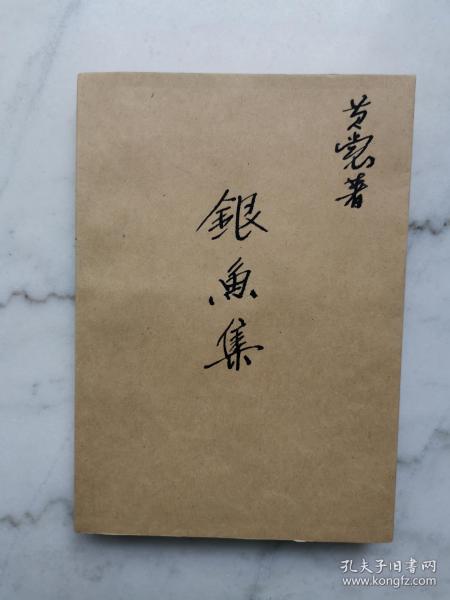 黄裳著
銀魚集
孔夫子旧书网
www.kongfz.com